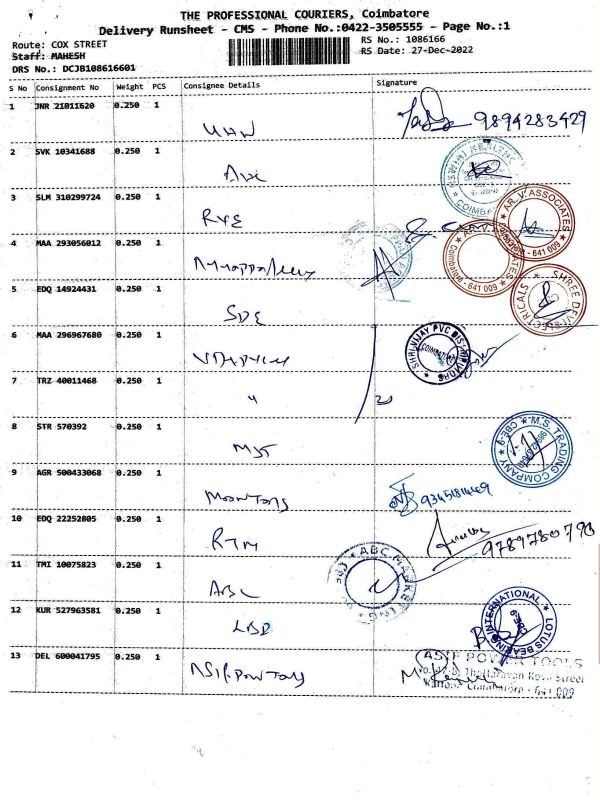 THE PROFESSIONAL COURIERS, Coimbatore
Delivery Runsheet - CMS - Phone No.:0422-3505555 - Page No.:1
Route: COX STREET
RS No.: 1086166
Staff: MAHESH
RS Date: 27-Dec-2022
DRS No.: DCJB108616601
S No Consignment No Weight PCS Consignee Details Signature
1 JNR 21011620 0.250 1
9894283429
2 SVK 10341688 0.250 1
3 SLM 310299724 0.250 1 RVE
AR.V.ASSOCIATES
641 009
4 MAA 293056012 0.250 1
Coimbatore - 641 009
5 EDQ 14924431 0.250 1 SDE
SHREE DEVI ELECTRICALS
6 MAA 296967680 0.250 1
SHRI VIJAY PVC DISTRIBUTORS
COIMBATORE
7 TRZ 40011468 0.250 1 "
8 STR 570392 0.250 1
M.S. TRADING COMPANY * CBE-9
9 AGR 500433068 0.250 1 Moontons
9345181469
10 EDQ 22252805 0.250 1 RTM
9789780790
11 TMI 10075823 0.250 1 ABC
ABC MARKETING
12 KUR 527963581 0.250 1 LBD
LOTUS BEARING INTERNATIONAL
CBE-9
13 DEL 600041795 0.250 1
ASIF POWER TOOLS
Street
Coimbatore - 641 009